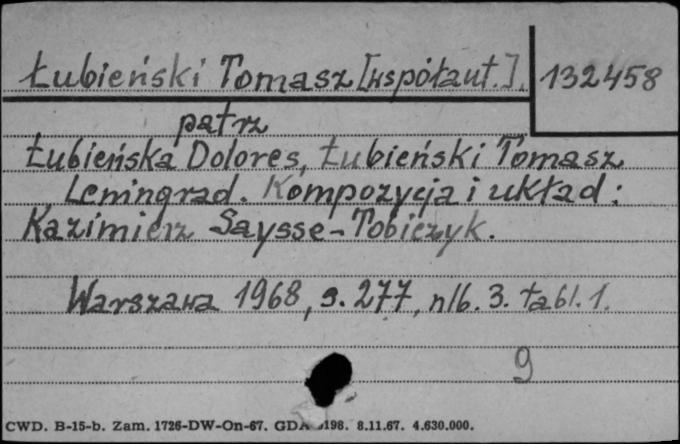 Łubieński Tomasz [współaut.]. 132458
patrz
Łubieńska Dolores, Łubieński Tomasz
Leningrad. Kompozycja i układ:
Kazimierz Saysse-Tobiczyk.
Warszawa 1968, s. 277, nlb. 3. tabl. 1.
9
CWD. B-15-b. Zam. 1726-DW-On-67. GDA 198. 8.11.67. 4.630.000.